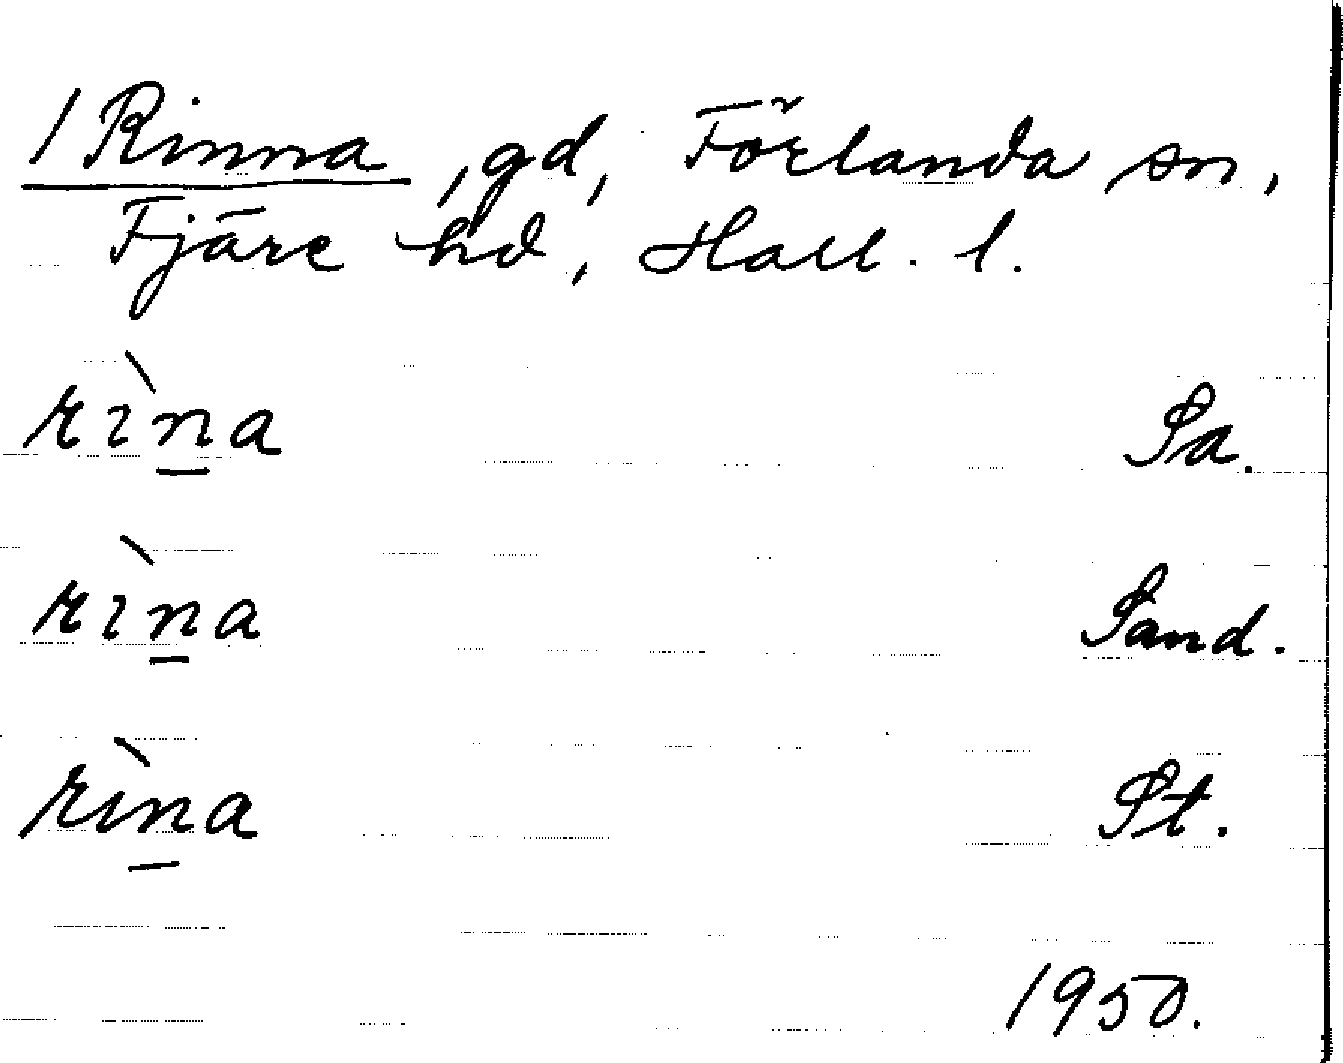 1 Rinna, gd, Förlanda sn,
Fjäre hd, Hall. l.
rìn̲a Sa.
rìn̲a Sand.
rìn̲a St.
1950.